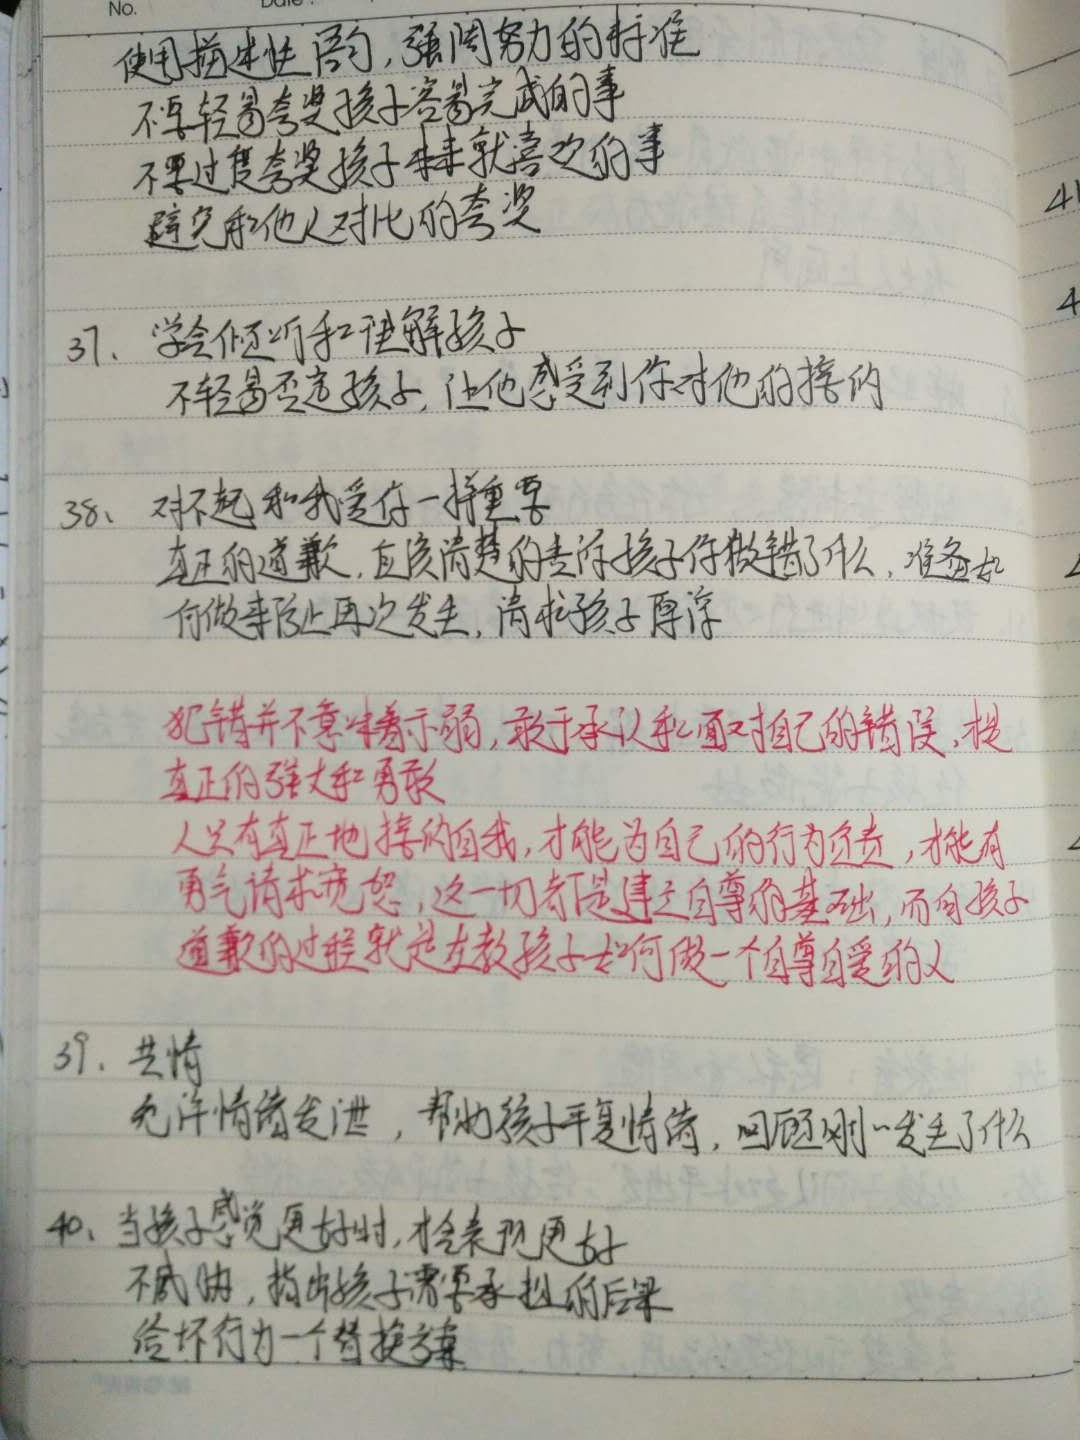 No.
Date:
使用描述性语句,强调努力的标准
不要轻易夸奖孩子容易完成的事
不要过度夸奖孩子本来就喜欢的事
避免和他人对比的夸奖
37、学会倾听和理解孩子
不轻易否定孩子,让他感受到你对他的接纳
38、对不起和我爱你一样重要
真正的道歉,应该清楚的告诉孩子你做错了什么,准备如
何做来防止再次发生,请求孩子原谅
犯错并不意味着示弱,敢于承认和面对自己的错误,是
真正的强大和勇敢
人只有真正地接纳自我,才能为自己的行为负责,才能有
勇气请求宽恕,这一切都是建立自尊的基础,而向孩子
道歉的过程就是在教孩子如何做一个自尊自爱的人
39、共情
允许情绪发泄,帮助孩子平复情绪,回顾刚刚发生了什么
40、当孩子感觉更好时,才会表现更好
不威胁,指出孩子需要承担的后果
给坏行为一个替换方案